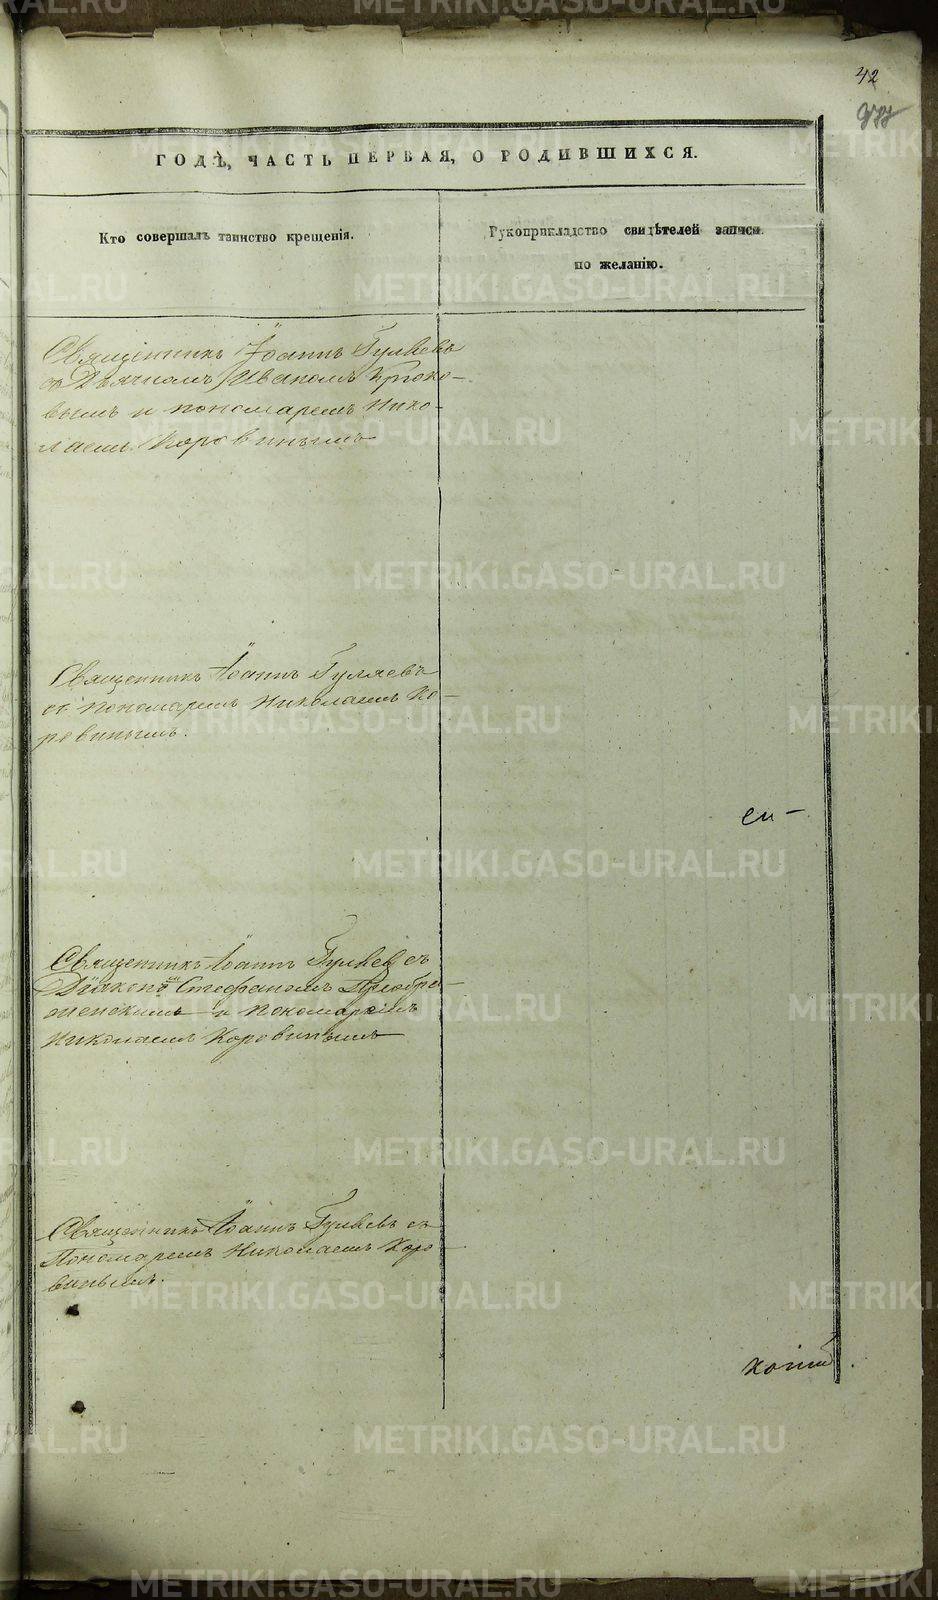 42
ГОДѢ, ЧАСТЬ ПЕРВАЯ, О РОДИВШИХСЯ.
Кто совершалъ таинство крещенія.
Рукоприкладство свидѣтелей записи
по желанію.
Священникъ Іоаннъ Гуляевъ
съ Дьячкомъ Иваномъ Крюко-
вымъ и пономаремъ Нико-
лаемъ Коровинымъ
Священникъ Іоаннъ Гуляевъ
съ пономаремъ Николаемъ Ко-
ровинымъ.
Священникъ Іоаннъ Гуляевъ съ
Діакономъ Стефаномъ
и пономаремъ
Николаемъ Коровинымъ
Священникъ Іоаннъ Гуляевъ съ
Пономаремъ Николаемъ Коро-
винымъ.
METRIKI.GASO-URAL.RU